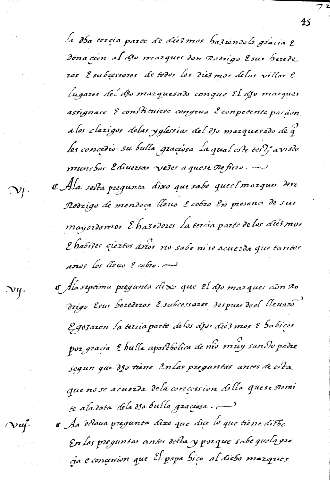 45
la dha tercia parte de diezmos haziendole gracia e
donacion al dho marques don Rodrigo e sus herede
ros e subcesores de todos los diezmos de las villas e
lugares del dho marquesado con que el dho marques
asignase e constituiese congruo e conpetente porcion
a los clerigos de las yglesias del dho marquesado de q
les concedio su bulla graciosa la qual este testigo a visto
muchas e diversas vezes a que se refiere
VI. A la sesta pregunta dixo que sabe que el marques don
Rodrigo de mendoça llevo e cobro en persona de sus
mayordomos e hazedores la tercia parte de los diezmos
e habizes ciertos años no sabe ni se acuerda que tantos
años los llevo e cobro
VII. A la septima pregunta dixo que el dho marques don Ro
drigo e sus herederos e subcesores despues del llevaron
e gozaron la tercia parte de los dhos diezmos e habizes
por gracia e bulla apostholica de nro muy sancto padre
segun que dho tiene en las preguntas antes de esta
que no se acuerda de la concession della que se remi
te a la data de la dha bulla graciosa
VIII. A la otava pregunta dixo que dize lo que tiene dicho
en las preguntas antes della y porque sabe que la gra
cia e concesion que el papa hizo al dicho marques